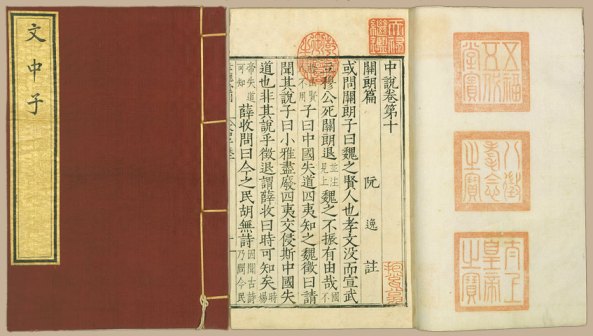 文中子
中說卷第十
關朗篇 阮逸註
或問關朗子曰魏之賢人也孝文没而宣武
立穆公死關朗退並注見上魏之不振有由哉
子曰中國失道四夷知之魏徵曰請
聞其說子曰小雅盡廢四夷交侵斯中國失
道也非其說乎徵退謂薛收曰時可知矣時煬
帝失道可知薛收問曰今之民胡無詩因聞古詩乃問今民
天祿繼鑑
五福五代堂寶
八徵耄念之寶
太上皇帝之寶